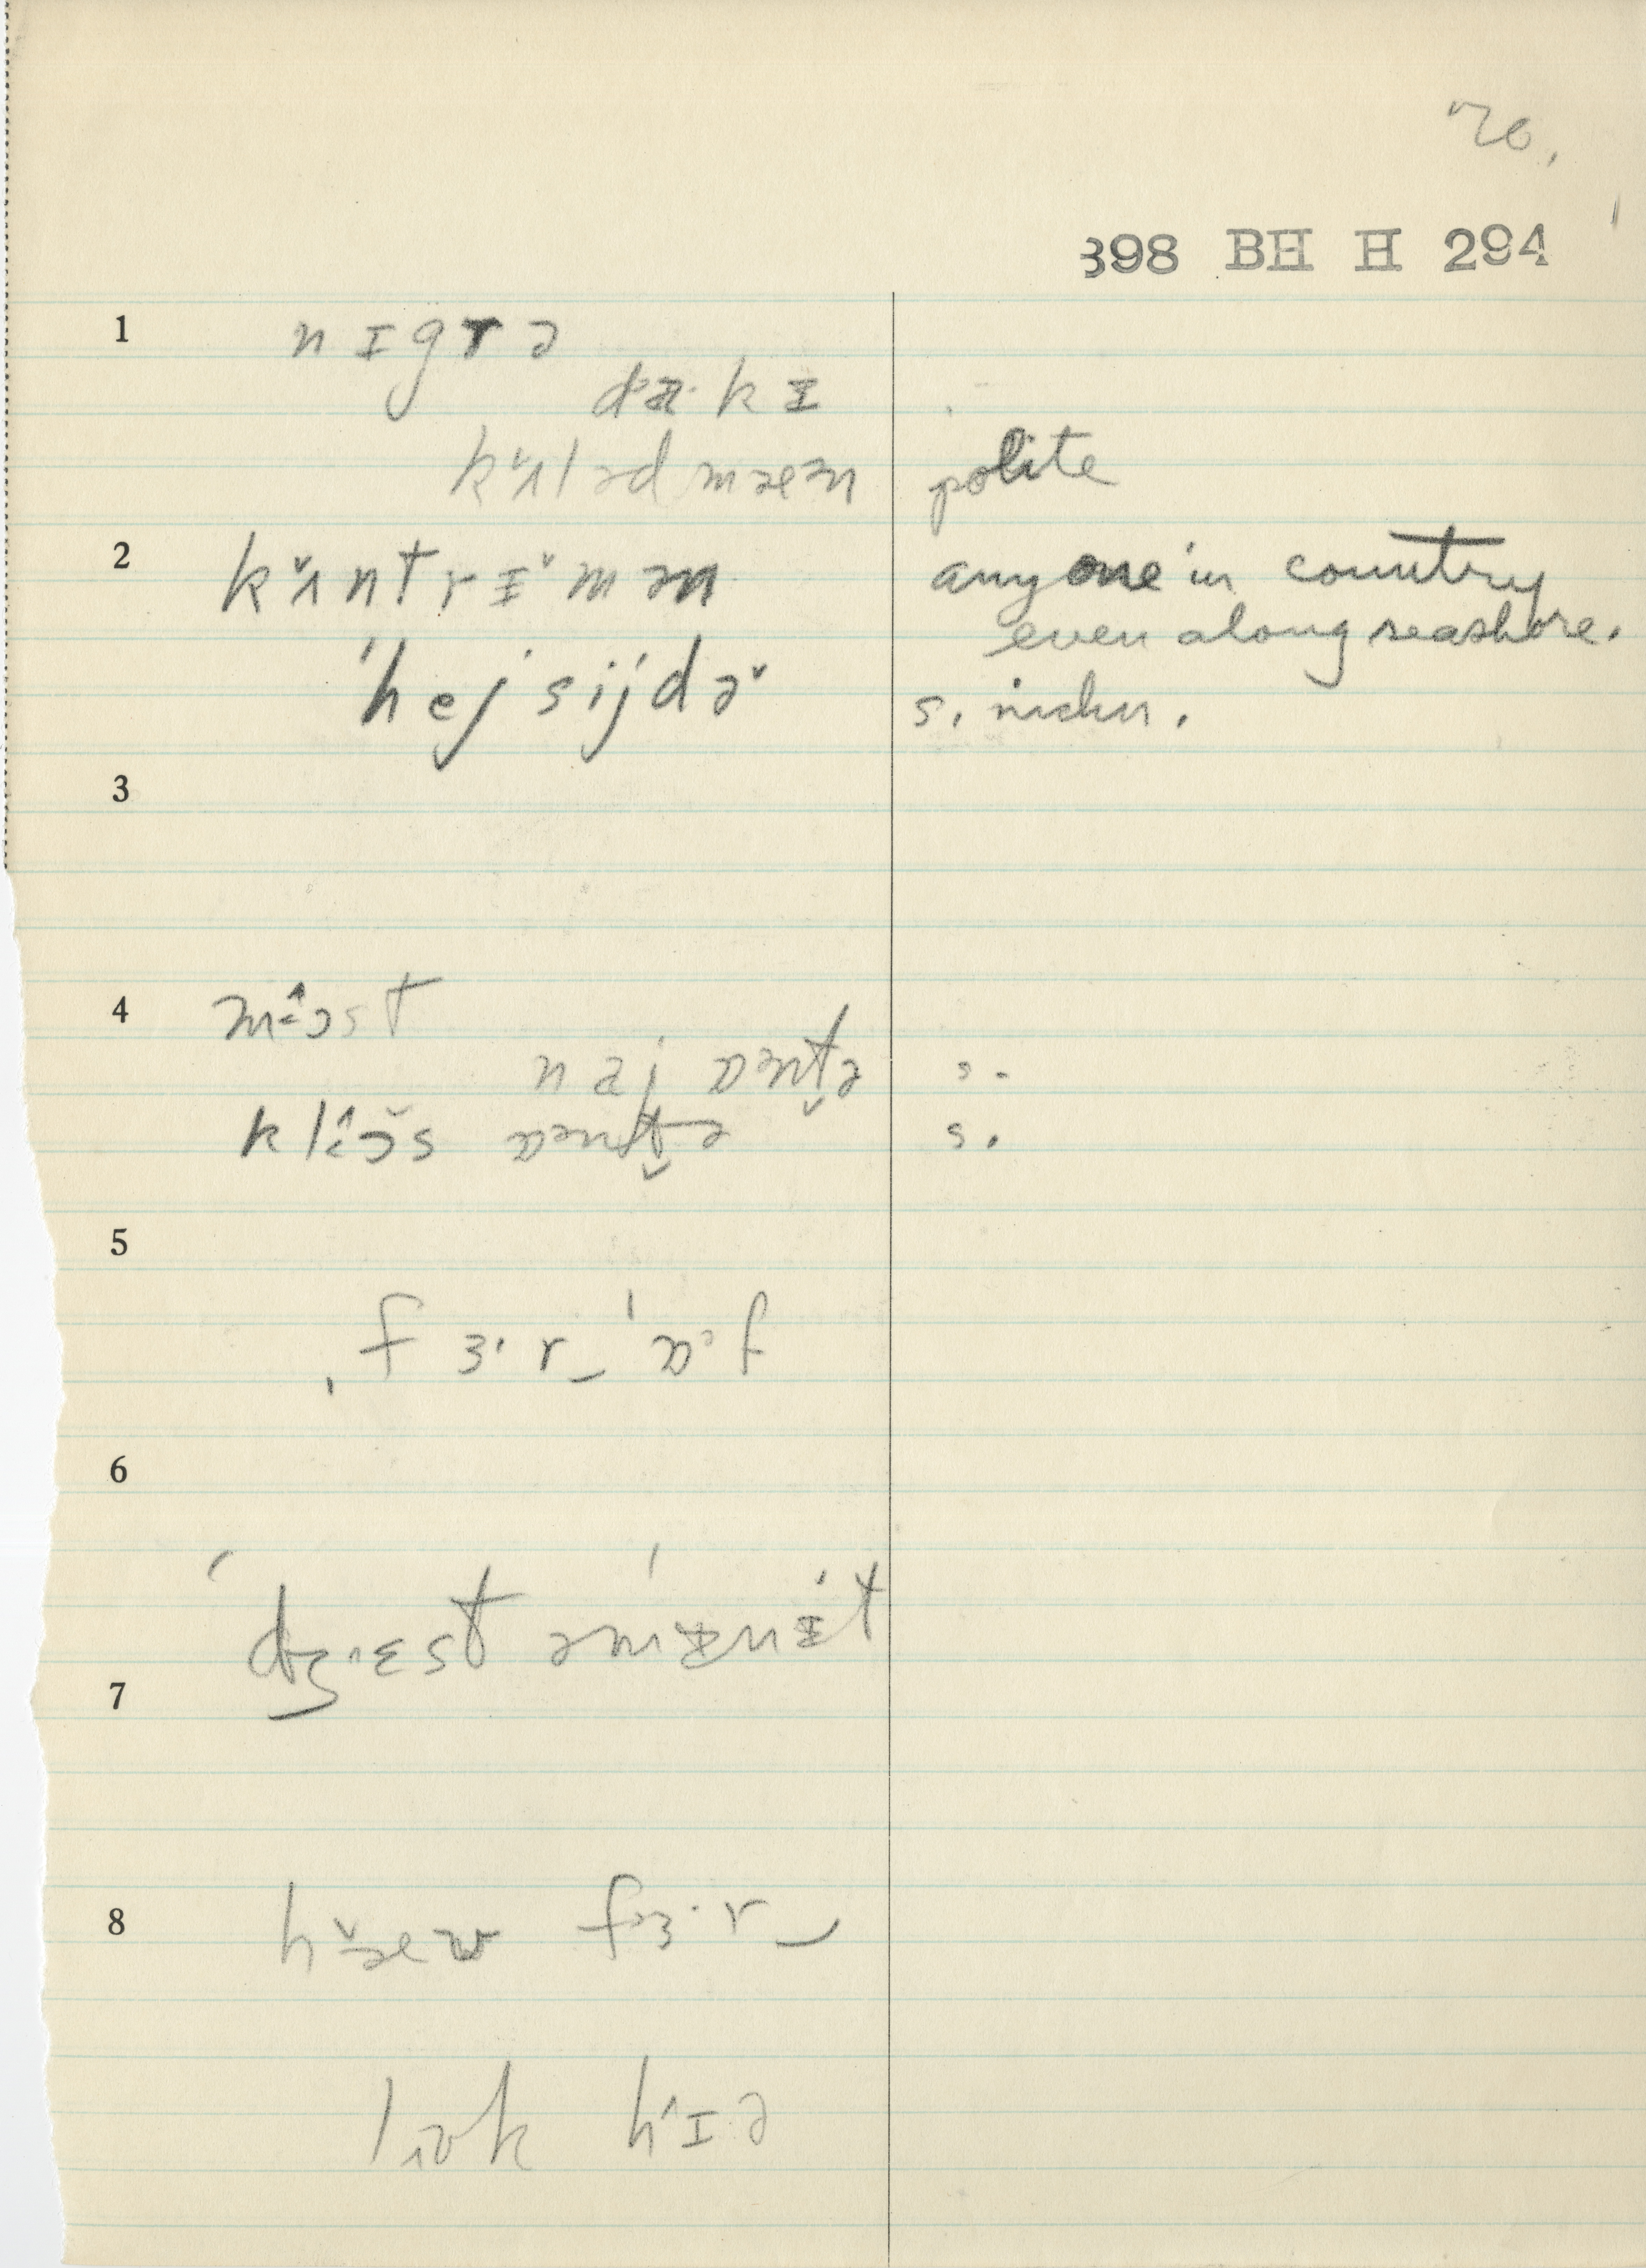 70.
398 BH H 294
1 nɪgrə
dɑ·kɪ
kʌ̆lədmæn polite
2 kʌ̆ntrɪ̆mən anyone in country
even along seashore.
'hejsijdə̆ s. nichn.
3
4 mɔ̂st
naj ɒnt̬ə s.
klɔ̂s ɒnt̬ə s.
5
fɜ·r_'ɒ·f
6
7 dʒɛst əmɪnɪt
8 hæ̆w fɜ·r_
lʊk hɪə